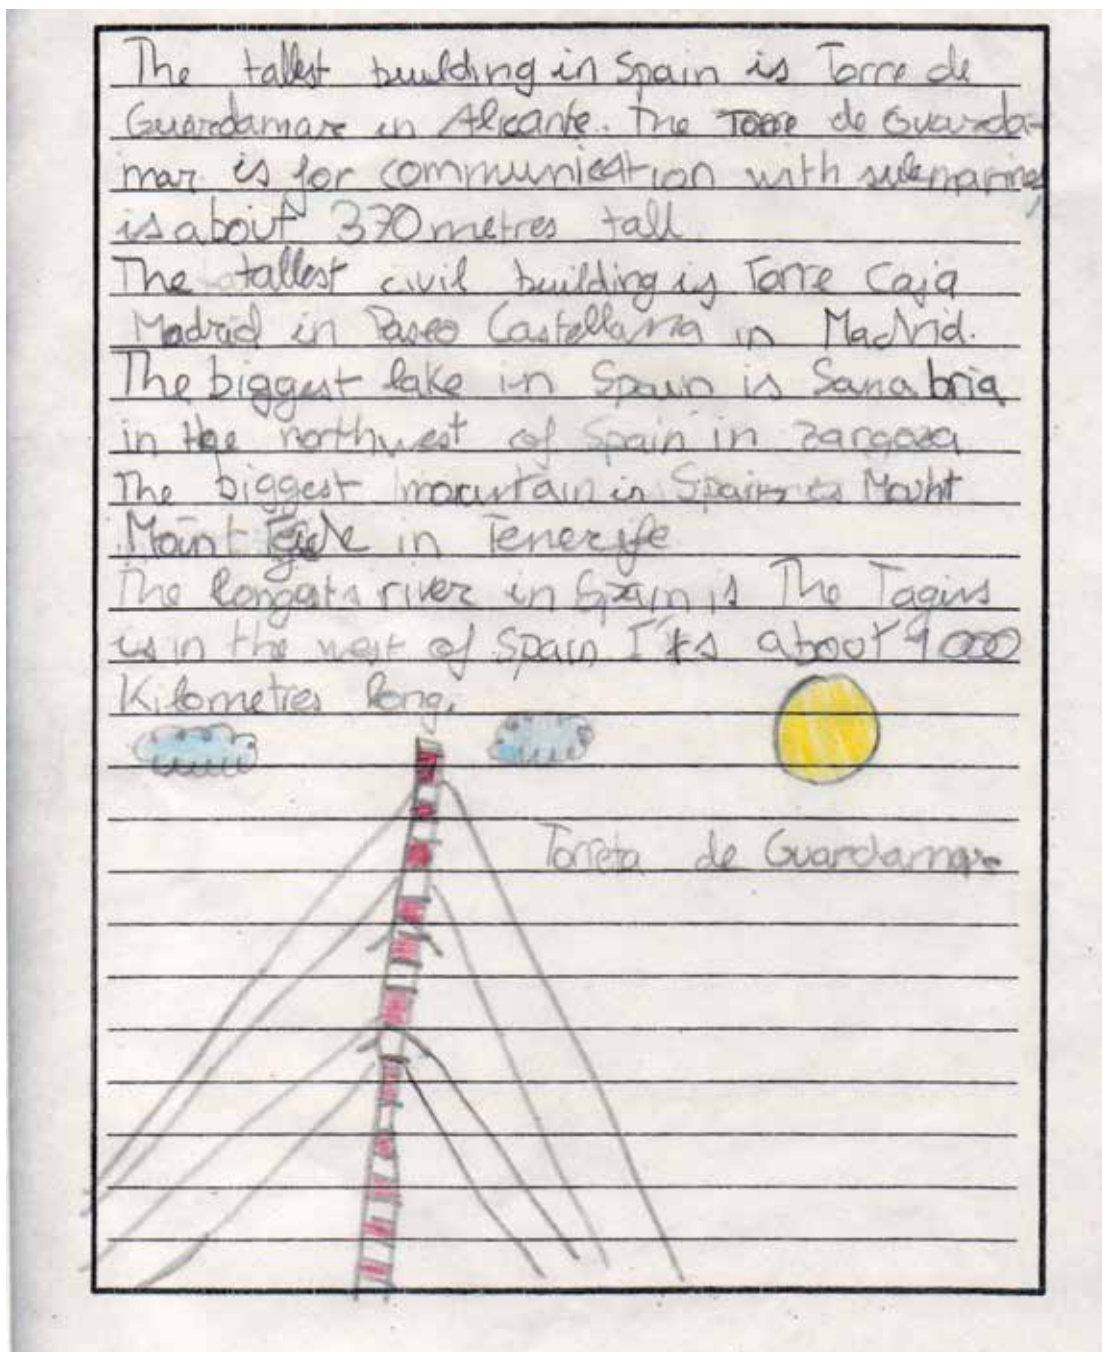 The tallest building in Spain is Torre de
Guardamare in Alicante. The Torre de Guarda-
mar is for communication with submarines,
is about 370 metres tall
The tallest civil building is Torre Caja
Madrid in Paseo Castellana in Madrid.
The biggest lake in Spain is Sanabria
in the northwest of Spain in zargoza
The biggest mountain in Spain is Mount
Mount Teide in Tenerife
The longats river in Spain is The Tagus
is in the west of Spain It's about 1000
Kilometres long.
Torreta de Guardamare